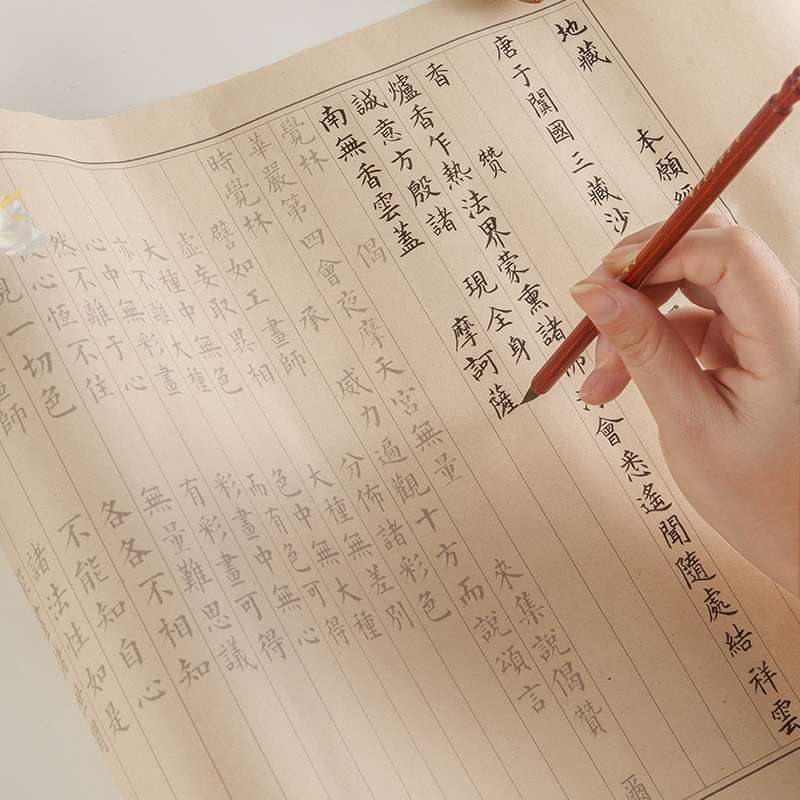 地藏 本願經
唐于闐國三藏沙
香 贊
爐香乍熱法界蒙熏諸佛海會悉遙聞隨處結祥雲
誠意方殷諸 現全身
南無香雲蓋 摩訶薩
覺林 偈
華嚴第四會夜摩天宮無量 來集說偈贊 爾
時覺林 承 威力遍觀十方而說頌言
譬如工畫師 分佈諸彩色
虛妄取異相 大種無差別
大種中無色 色中無大種
亦不離大種 而有色可得
心中無彩畫 彩畫中無心
然不離于心 有彩畫可得
心恆不住 無量難思議
現一切色 各各不相知
畫師 不能知自心
諸法性如是